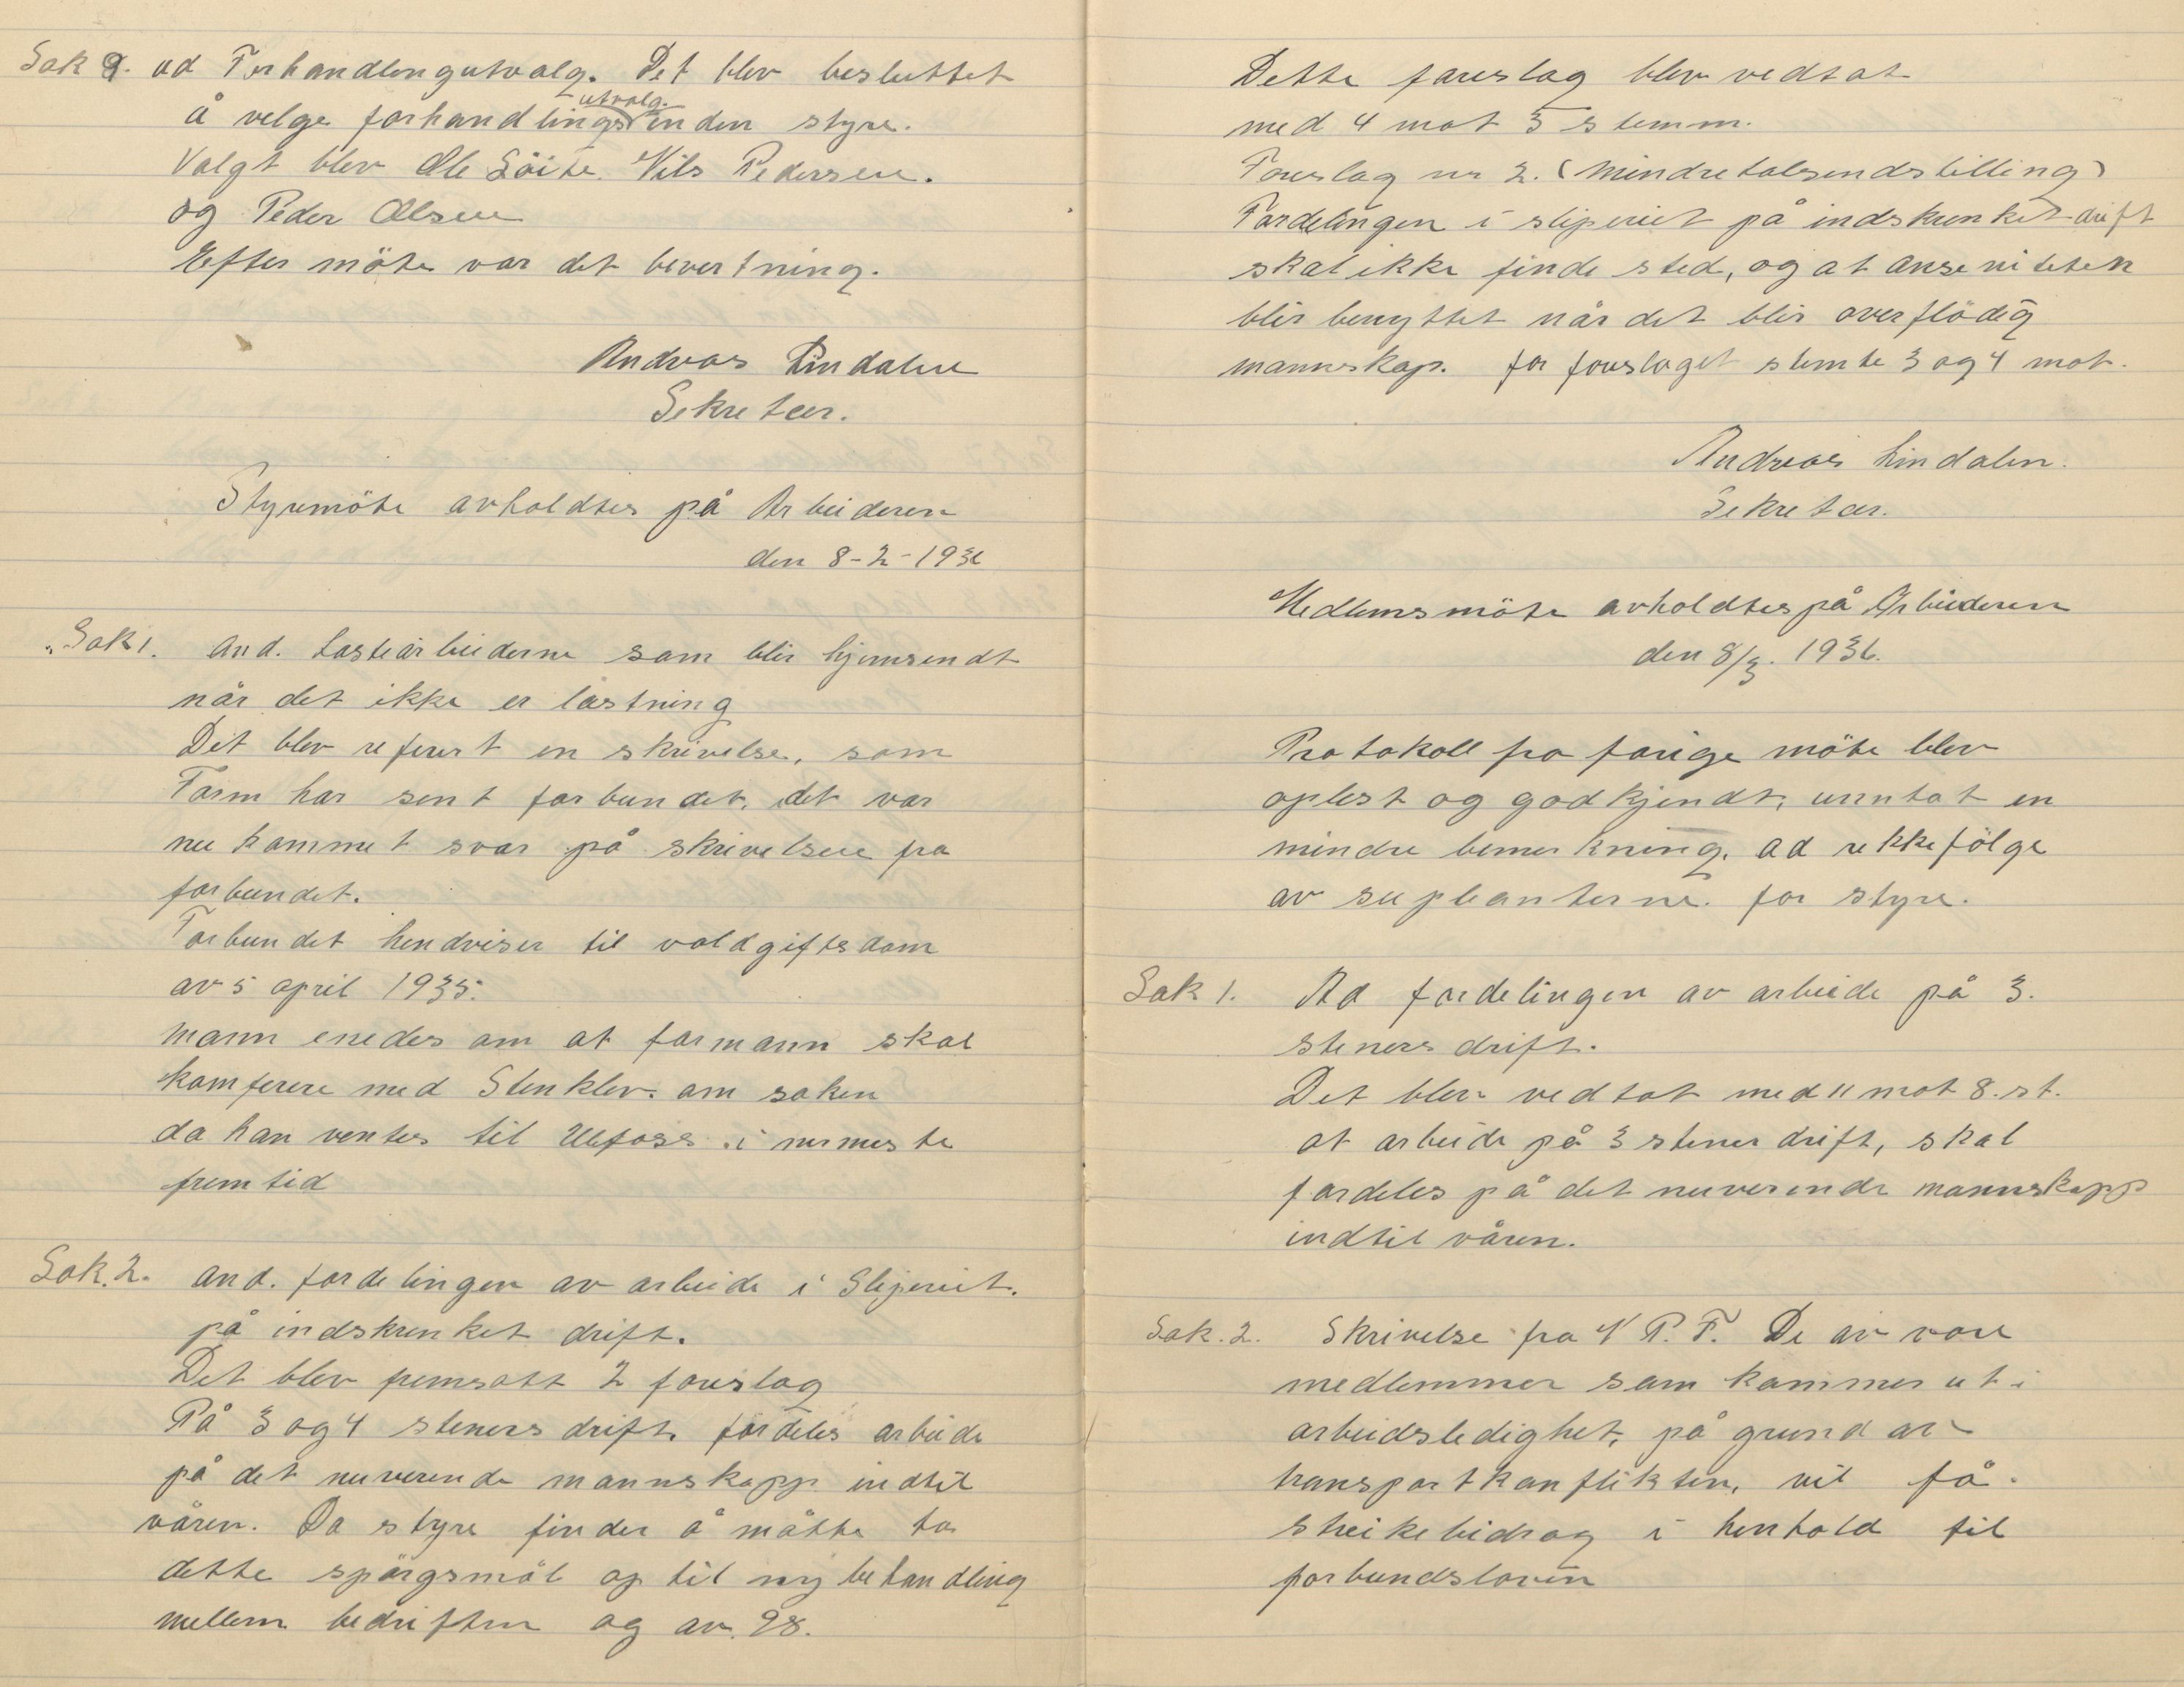 Sak 9. ad Forhandlingutvalg. Det blev besluttet
utvalg.
å velge forhandlings inden styre.
Valgt blev Ole Löite. Nils Pedersen.
og Peder Olsen
Efter möte var det bevertning.
Andreas Lindalen
Sekretær.
Styremöte avholdtes på Arbeideren
den 8-2-1936
Sak 1. And. Lastearbeiderne som blir hjemsendt
når det ikke er lastning
Det blev referert en skrivelse, som
Form har sent forbundet, det var
nu kommet svar på skrivelsen fra
forbundet.
Forbundet hendviser til voldgiftsdom
av 5 april 1935.
Mann enedes om at formann skal
komferere med Stenklev. om saken
da han ventes til Ulefoss i nermeste
fremtid
Sak. 2. And. fordelingen av arbeide i Sliperiet.
på indskrenket drift.
Det blev fremsatt 2 forslag
På 3 og 4 steners drift. fordeles arbeide
på det nuverende mannskapp indtil
våren. Da styre finder å måtte ta
dette spörgsmål op til ny behandling
mellem bedriften og av. 98.
Dette forslag blev vedtat
med 4 mot 3 stemm.
Forslag nr 2. (Mindretalsendstilling)
Fordelingen i sliperiet på indskrenket drift
skal ikke finde sted, og at anseniteten
blir benyttet når det blir overflödig
mannskap. for forslaget stemte 3 og 4 mot.
Andreas Lindalen.
Sekretær.
Medlemsmöte avholdtes på Arbeideren
den 8/3. 1936.
Protokoll fra forige möte blev
oplest og godkjendt, unntat en
mindre bemerkning, ad rekkefölge
av supleanterne. for styre.
Sak 1. Ad fordelingen av arbeide på 3.
steners drift.
Det blev vedtat med 11 mot 8. st.
at arbeide på 3 stener drift, skal
fordeles på det nuverende mannskapp
indtil våren.
Sak. 2. Skrivelse fra N P. F. De av vore
medlemmer som kommer ut i
arbeidsledighet, på grund av
transportkonflikten, vil få
streikebidrag i henhold til
forbundsloven